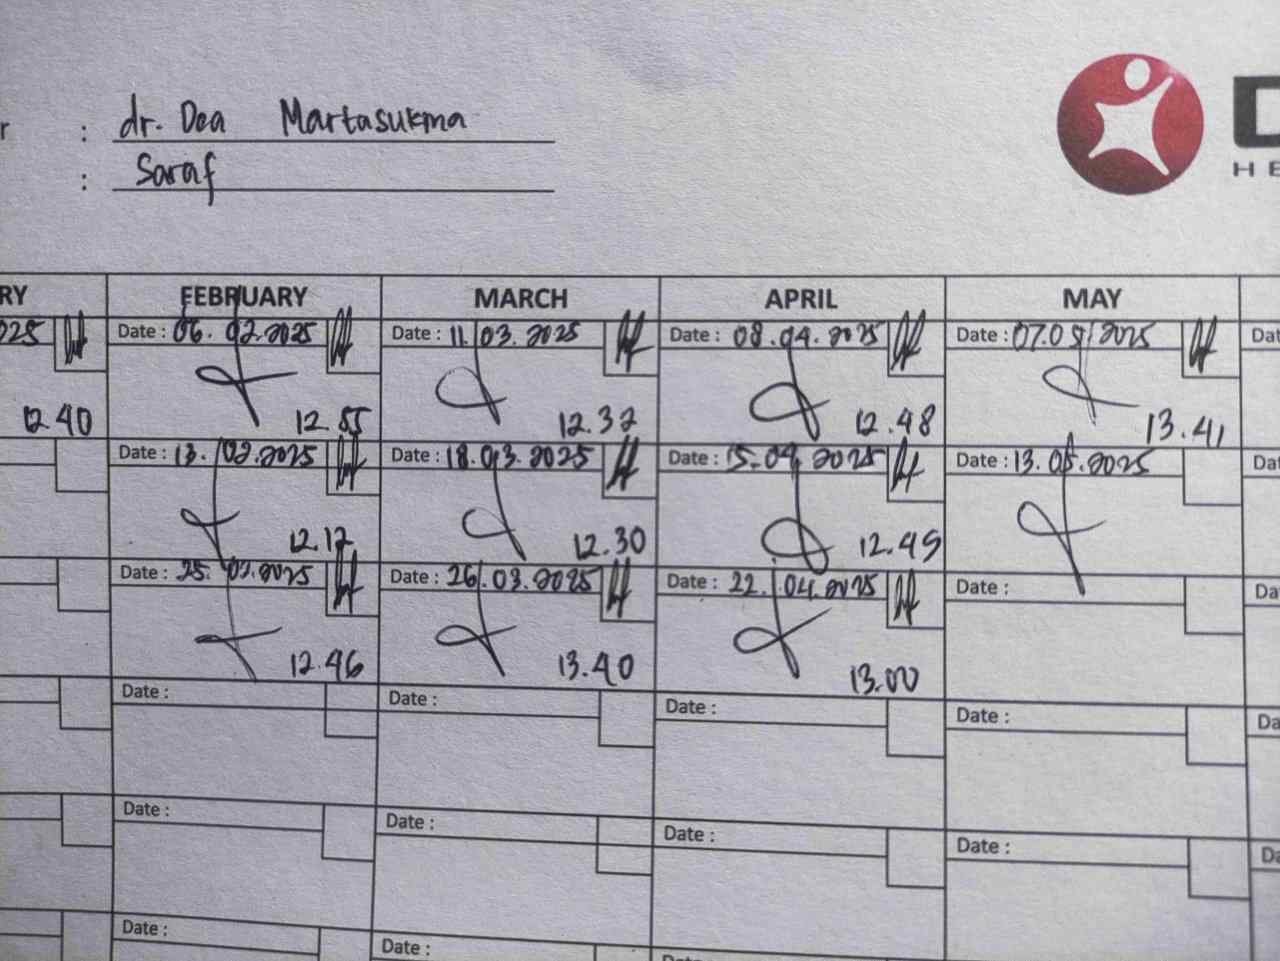 r : dr. Dea Martasukma
: Saraf
D
HE
RY FEBRUARY MARCH APRIL MAY
025 Date : 06.02.2025 Date : 11.03.2025 Date : 08.04.2025 Date : 07.05.2025 Dat
12.40 12.55 12.32 12.48 13.41
Date : 13.02.2025 Date : 18.03.2025 Date : 15.04.2025 Date : 13.05.2025 Dat
12.12 12.30 12.49
Date : 25.02.2025 Date : 26.03.2025 Date : 22.04.2025 Date : Da
12.46 13.40 13.00
Date : Date : Date : Date : Da
Date : Date : Date : Date : Da
Date : Date :